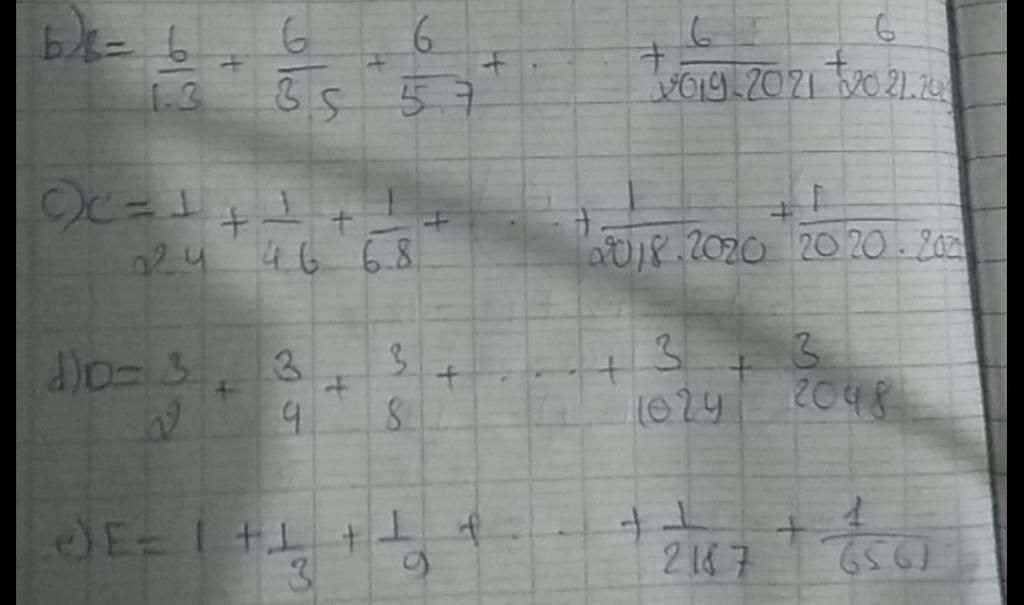 b) B = 6/1.3 + 6/3.5 + 6/5.7 + . . . + 6/2019.2021 + 6/2021.
c) C = 1/2 4 + 1/4 6 + 1/6 8 + . . . + 1/2018.2020 + 1/2020.
d) D = 3/2 + 3/4 + 3/8 + . . . . + 3/1024 + 3/2048
e) E = 1 + 1/3 + 1/9 + . . . + 1/2187 + 1/6561